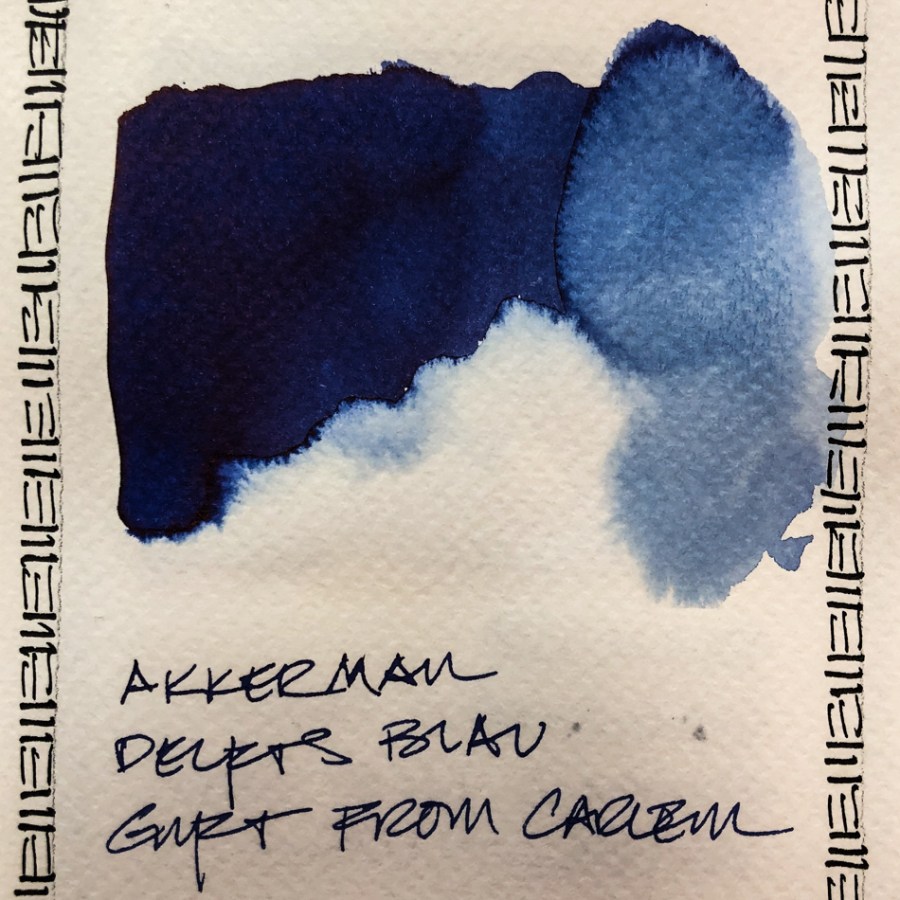 AKKERMAN
DELFTS BLAU
GIFT FROM